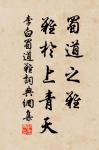 蜀道之難
難於上青天
李白蜀道難詞典網集